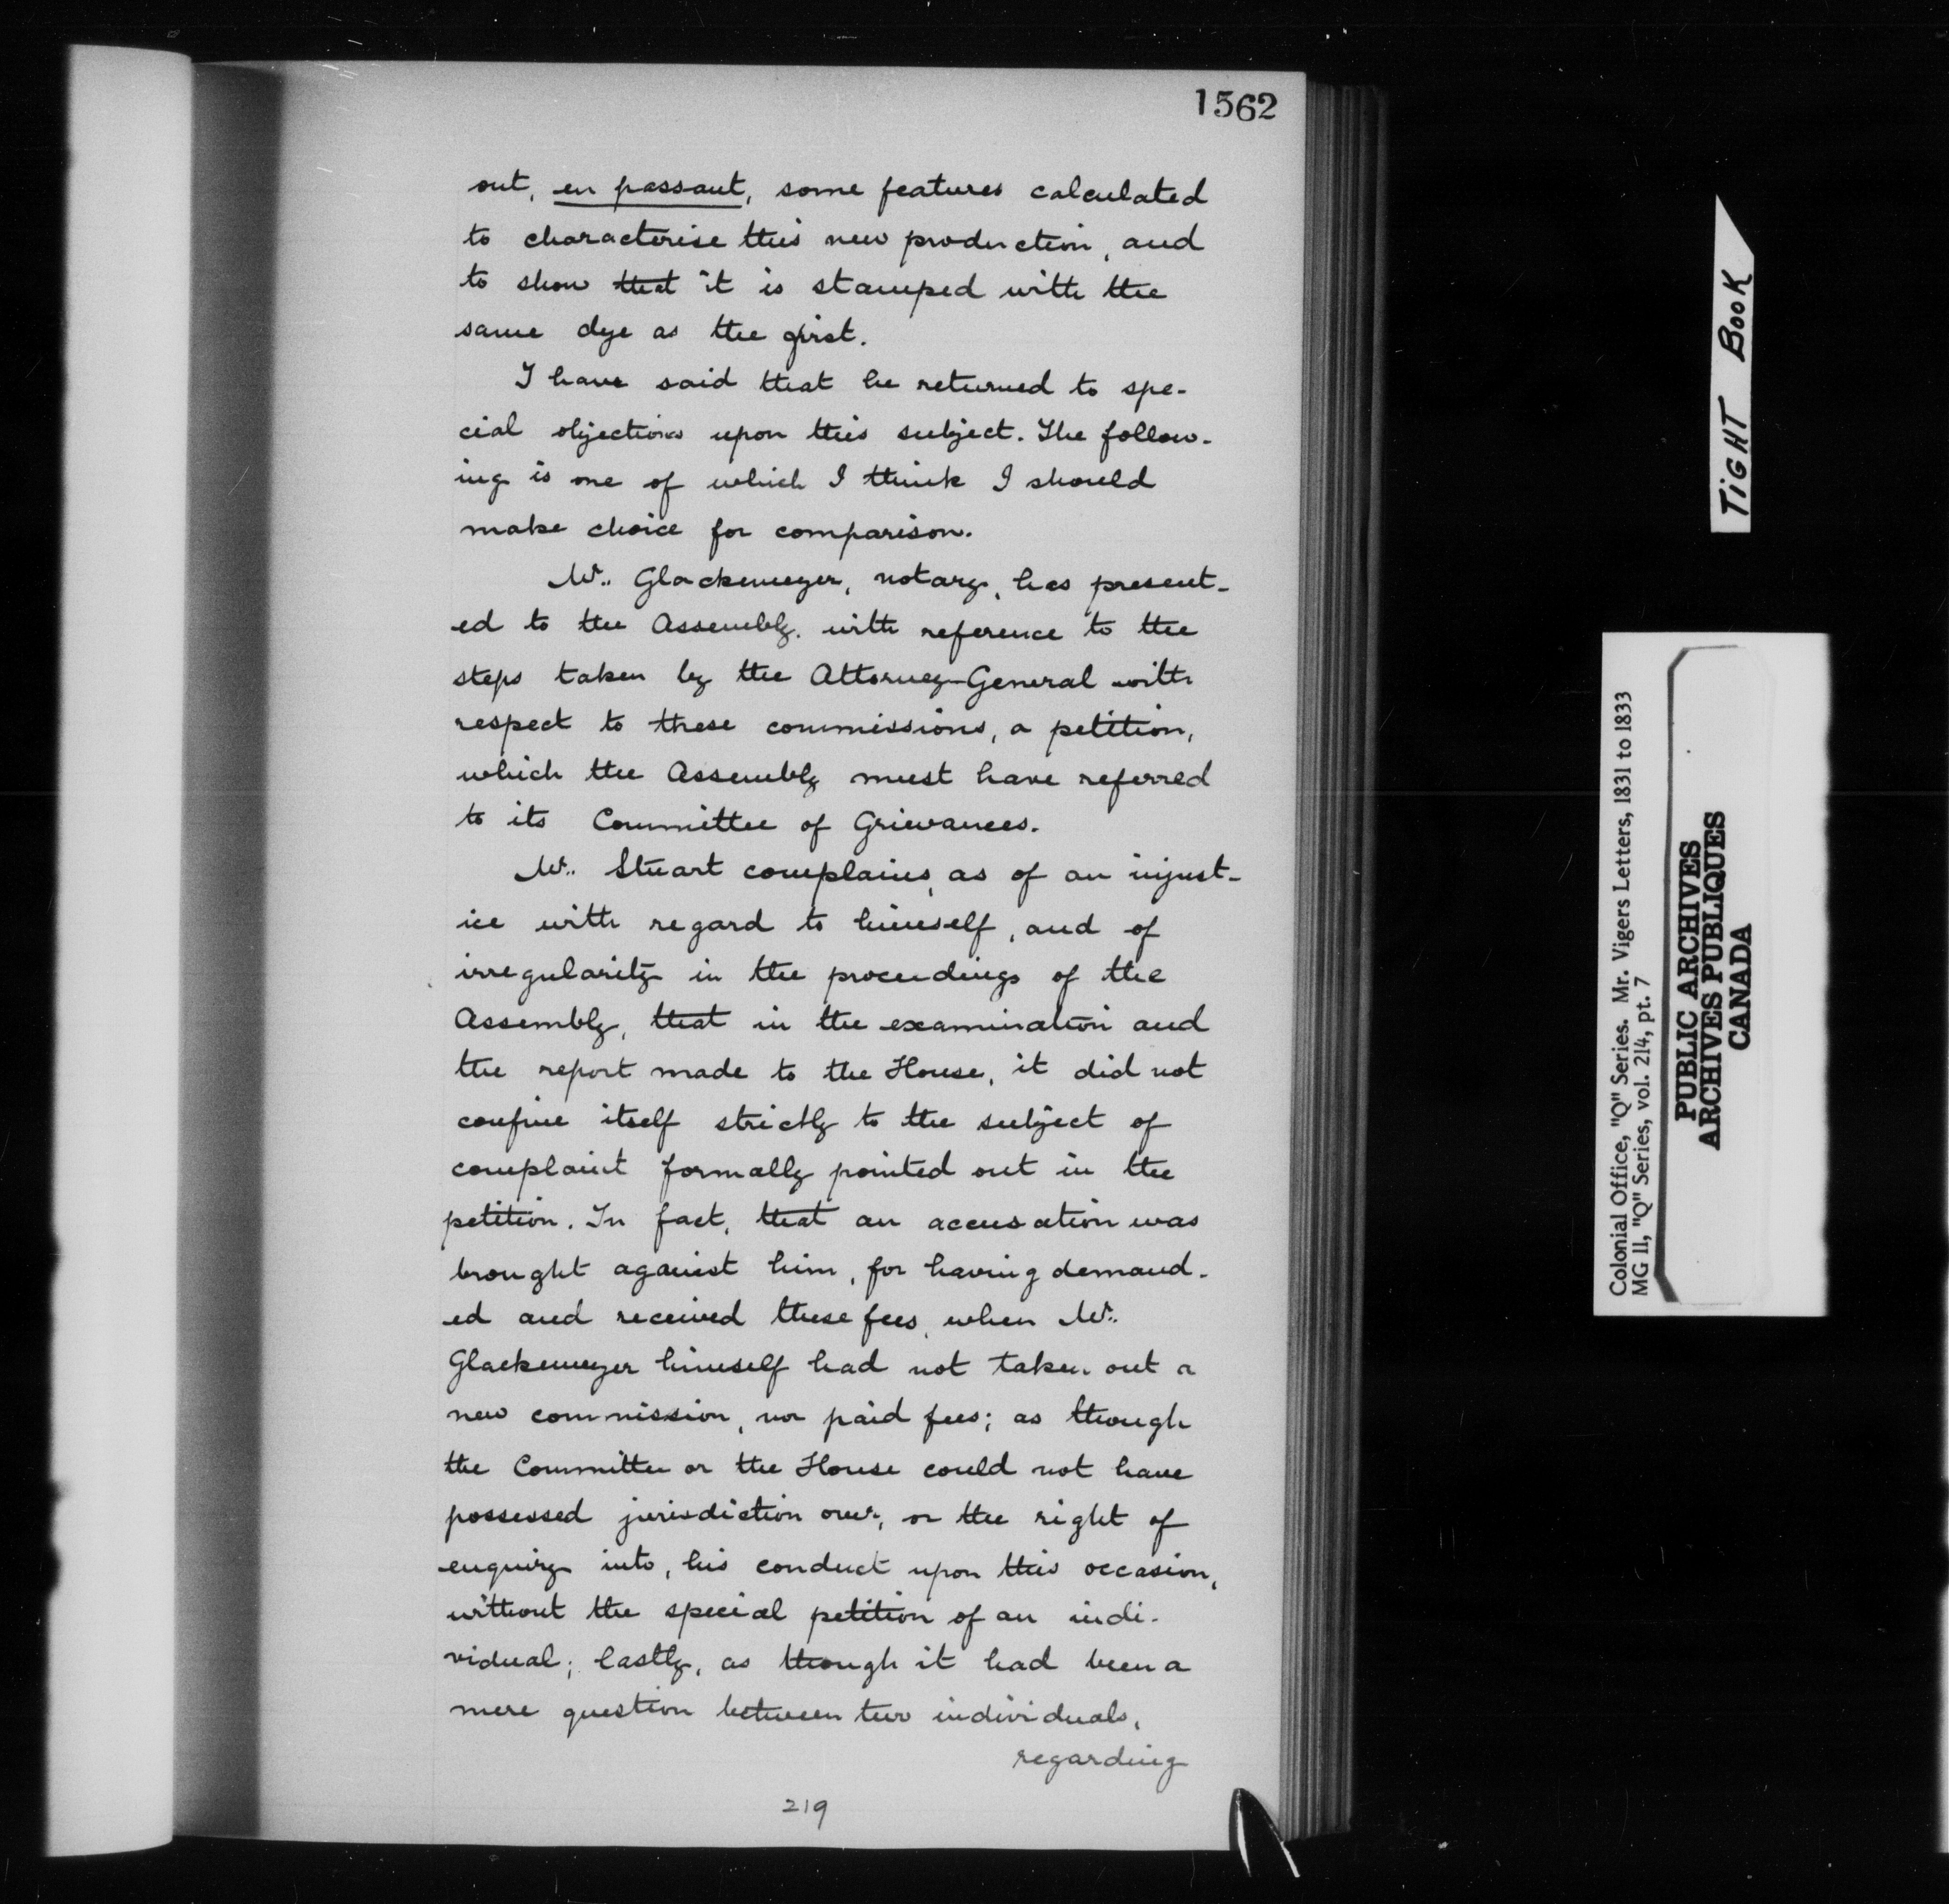 1562
out, en passant, some features calculated
to characterise this new production, and
to show that it is stamped with the
same dye as the first.
I have said that he returned to spe-
cial objections upon this subject. The follow-
ing is one of which I think I should
make choice for comparison.
Mr. Glackemeyer, notary, has present-
ed to the Assembly, with reference to the
steps taken by the Attorney-General with
respect to these commissions, a petition,
which the Assembly must have referred
to its Committee of Grievances.
Mr. Stuart complains, as of an injust-
ice with regard to himself, and of
irregularity in the proceedings of the
Assembly, that in the examination and
the report made to the House, it did not
confine itself strictly to the subject of
complaint formally pointed out in the
petition. In fact, that an accusation was
brought against him, for having demand-
ed and received these fees, when Mr.
Glackemeyer himself had not taken out a
new commission, nor paid fees; as though
the Committee or the House could not have
possessed jurisdiction over, or the right of
enquiry into, his conduct upon this occasion,
without the special petition of an indi-
vidual; lastly, as though it had been a
mere question between two individuals,
regarding
219
TIGHT BOOK
Colonial Office, "Q" Series. Mr. Vigers Letters, 1831 to 1833
MG 11, "Q" Series, vol. 214, pt. 7
PUBLIC ARCHIVES
ARCHIVES PUBLIQUES
CANADA